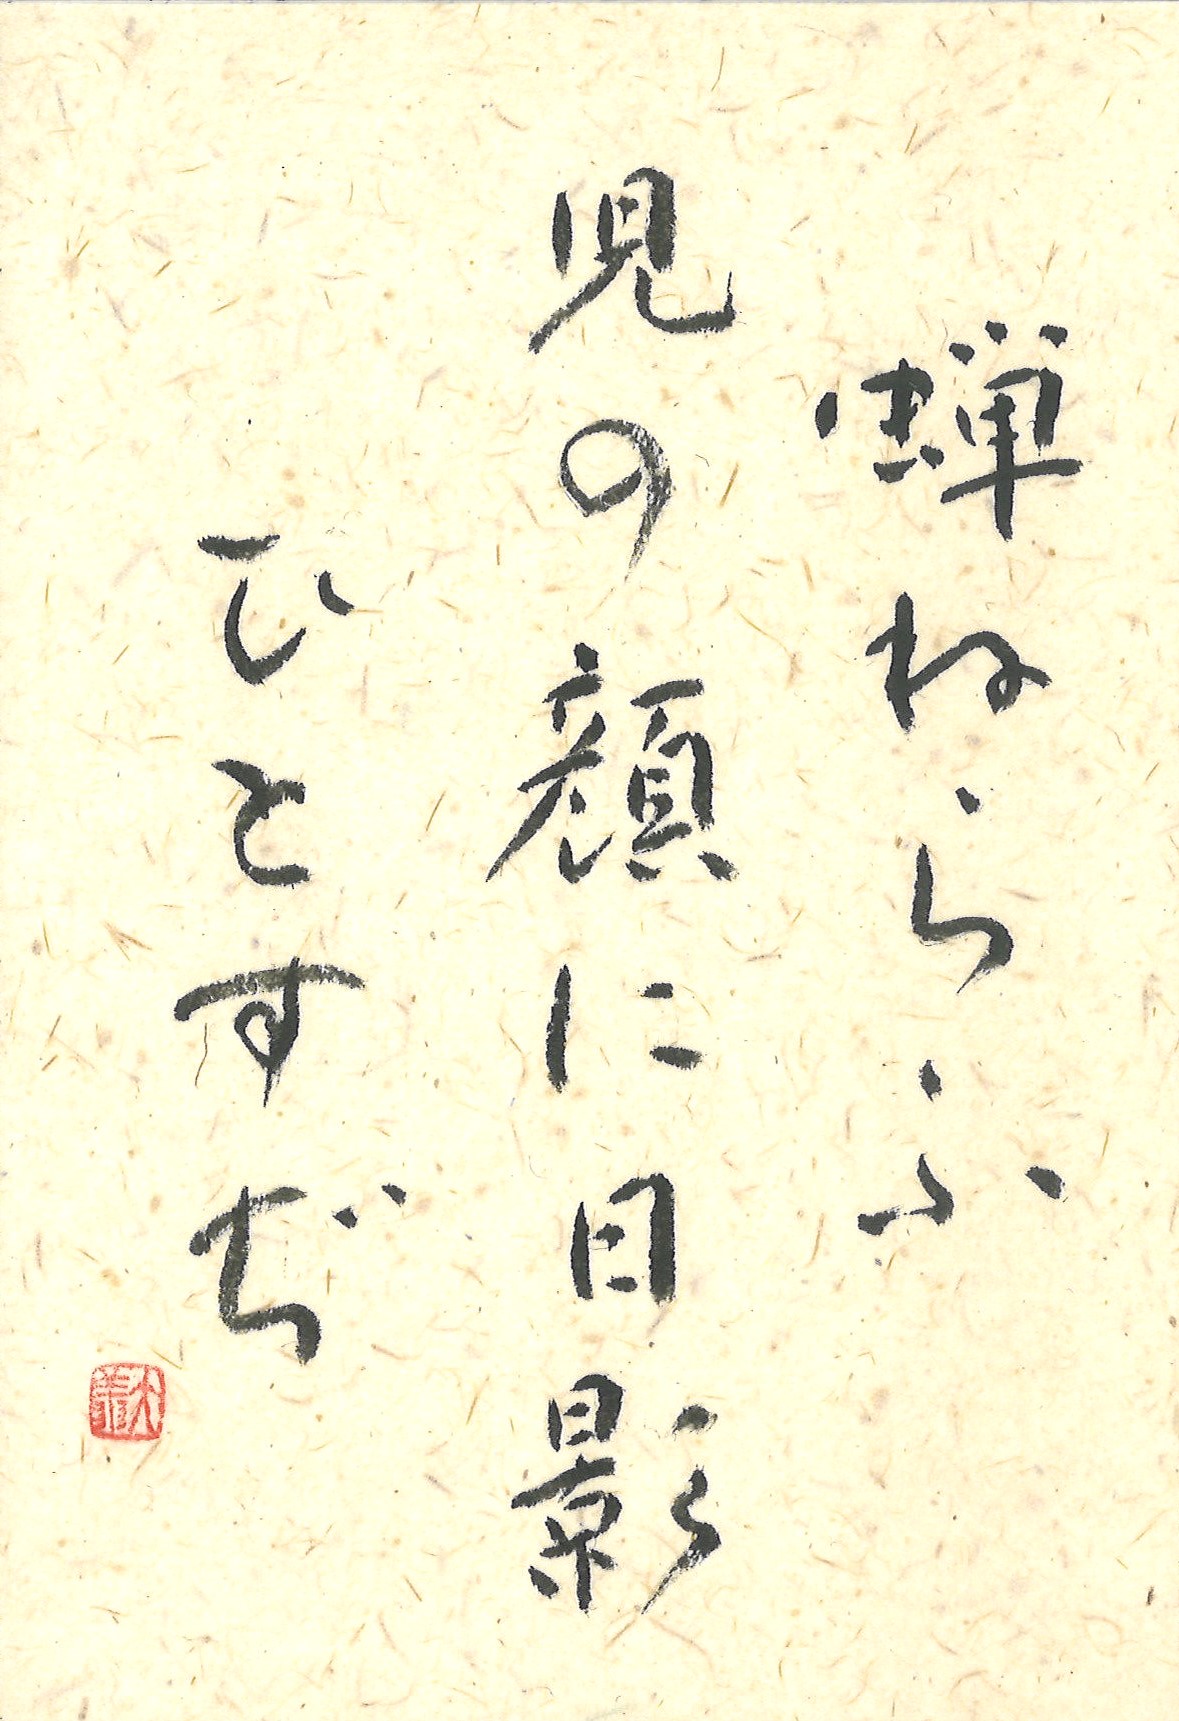 蝉ねらふ
児の顔に日影
ひとすぢ